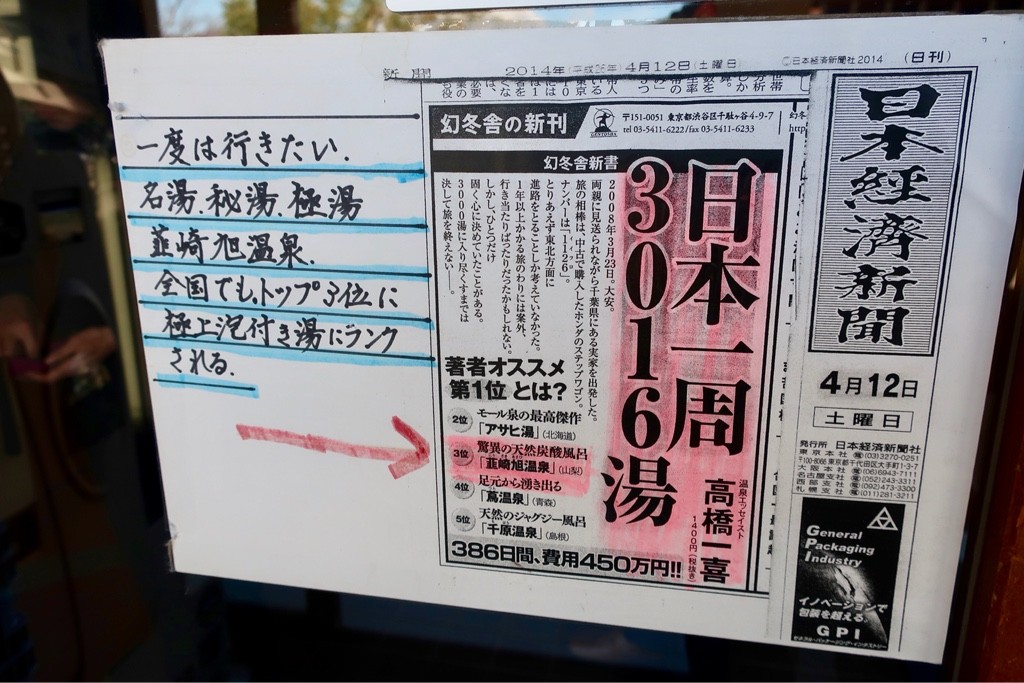 一度は行きたい.
名湯、秘湯、極湯
韮崎旭温泉.
全国でも、トップ3位に
極上泡付き湯にランク
される.
新聞
2014年(平成26年)4月12日(土曜日)
©日本経済新聞社2014
(日刊)
幻冬舎の新刊
GENTOSHA
〒151-0051 東京都渋谷区千駄ヶ谷4-9-7
tel 03-5411-6222/fax 03-5411-6233
幻冬舎新書
日本一周
3016湯
温泉エッセイスト
高橋一喜
1400円(税抜き)
2008年3月23日。大安。
両親に見送られながら千葉県にある実家を出発した。
旅の相棒は、中古で購入したホンダのステップワゴン。
ナンバーは「1126」。
とりあえず東北方面に
進路をとることしか考えていなかった。
1年以上かかる旅のわりには案外、
行き当たりばったりだったかもしれない。
しかし、ひとつだけ
固く心に決めていたことがある。
3000湯に入り尽くすまでは
決して旅を終えない――。
著者オススメ
第1位とは?
2位 モール泉の最高傑作
「アサヒ湯」(北海道)
3位 驚異の天然炭酸風呂
「韮崎旭温泉」(山梨)
4位 足元から湧き出る
「蔦温泉」(青森)
5位 天然のジャグジー風呂
「千原温泉」(島根)
386日間、費用450万円!!
日本経済新聞
4月12日
土曜日
発行所 日本経済新聞社
東京本社 (03)3270-0251
〒100-8066 東京都千代田区大手町1-3-7
大阪本社 (06)6943-7111
名古屋支社 (052)243-3311
西部支社 (092)473-3300
札幌支社 (011)281-3211
General
Packaging
Industry
イノベーションで
包装を超える
GPI
ゼネラル・パッケージング・インダストリー